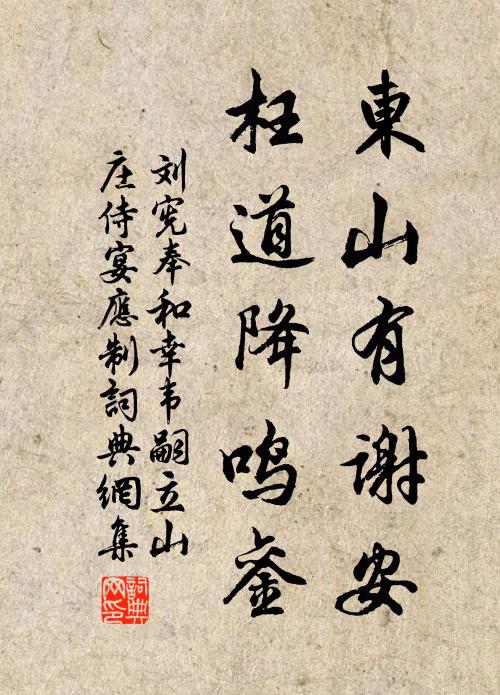 東山有谢安
枉道降鸣銮
刘宪奉和幸韦嗣立山
庄侍宴應制詞典網集
詞典
网印